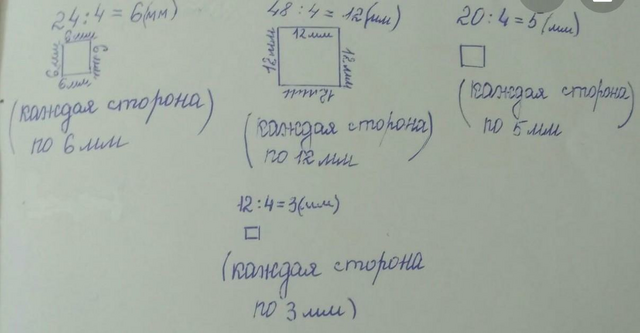 24:4=6(мм)
6мм
6мм
6мм
6мм
(каждая сторона)
по 6мм
48:4=12(мм)
12мм
12мм
12мм
12мм
(каждая сторона)
по 12мм
20:4=5(мм)
(каждая сторона)
по 5мм
12:4=3(мм)
(каждая сторона
по 3мм)